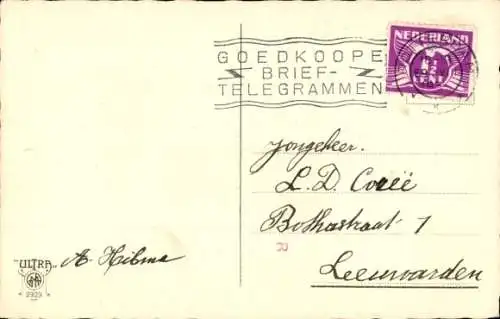 GOEDKOOPE
BRIEF-
TELEGRAMMEN
NEDERLAND
Jongeheer.
L. D.
Bothastraat 1
Leeuwarden
"ULTRA"
A. Hibma